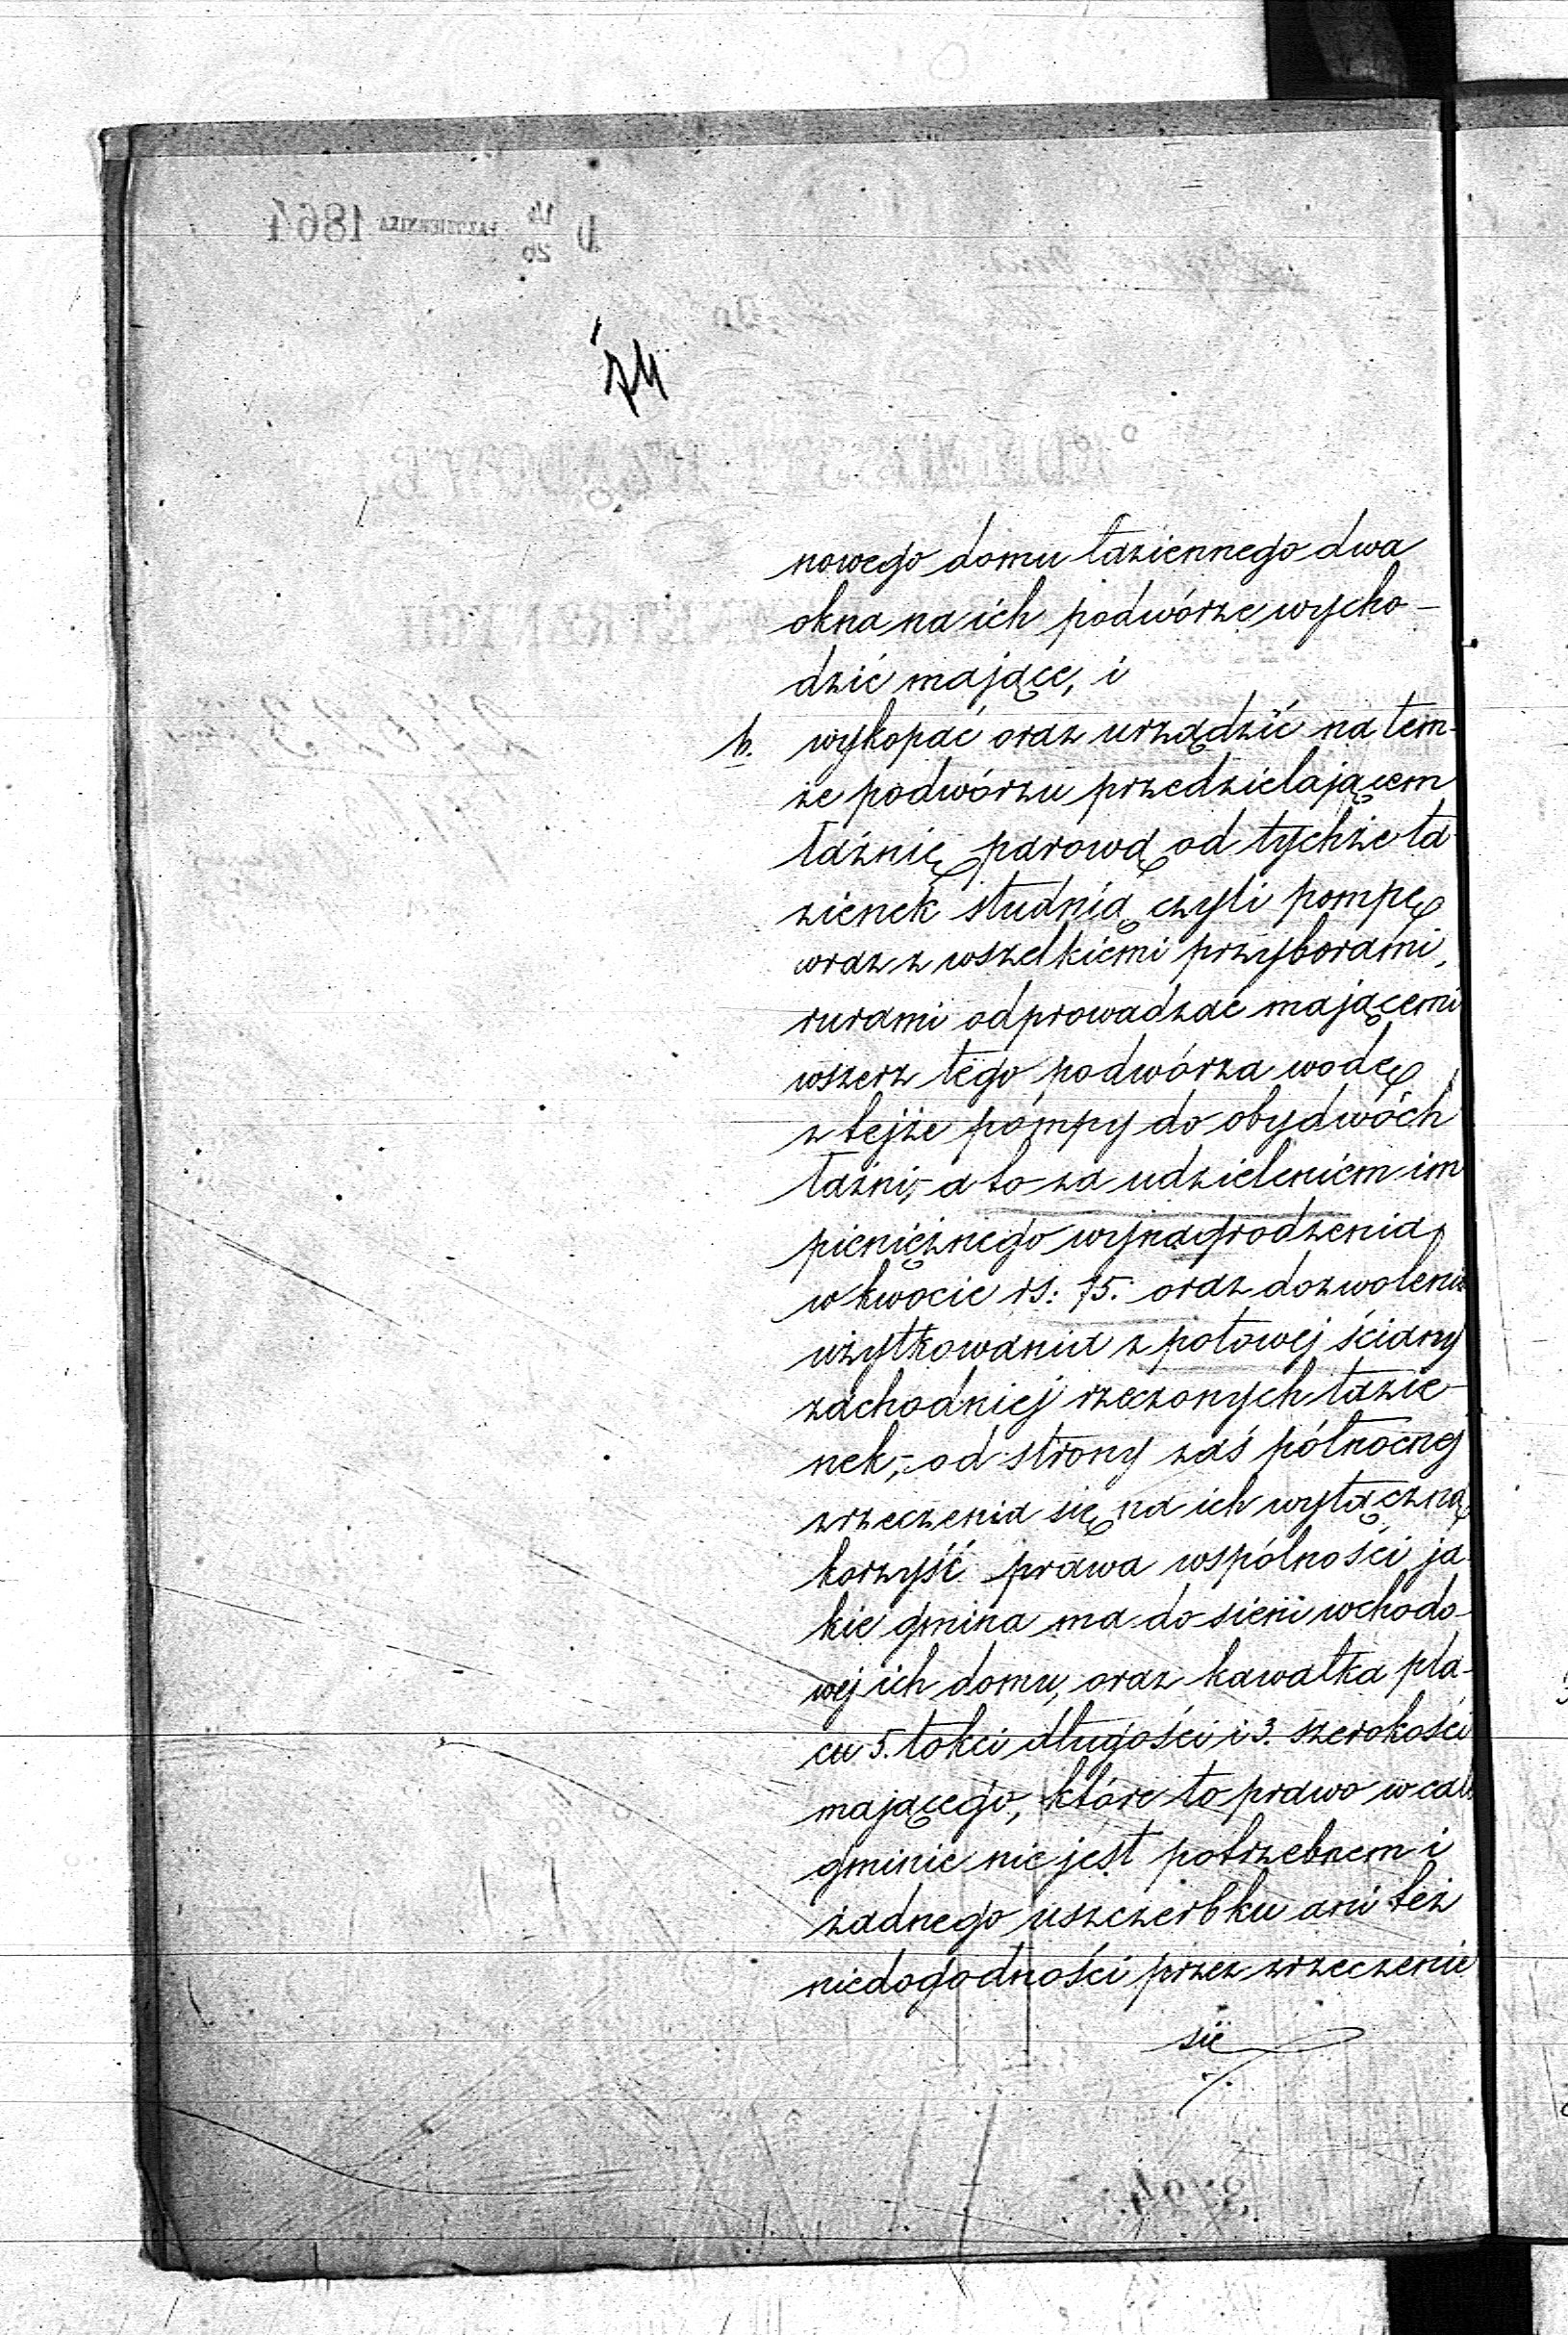 nowego domu łaziennego dwa
okna na ich podwórze wycho-
dzić mające, i
b. wykopać oraz urządzić na tem-
że podwórzu przedzielającem
łaźnię parową od tychże ła-
zienek studnią czyli pompę
wraz z wszelkiemi przyborami,
rurami odprowadzać mającemi
wszerz tego podwórza wodę
z tejże pompy do obydwóch
łaźni,- a to za udzieleniem im
pieniężnego wynagrodzenia
w kwocie rs: 75. oraz dozwolenia
użytkowania z połowej ściany
zachodniej rzeczonych łazie-
nek,- od strony zaś północnej
zrzeczenia się na ich wyłączną
korzyść prawa wspólności ja-
kie gmina ma do sieni wchodo-
wej ich domu, oraz kawałka pla-
cu 5. łokci długości i 3. szerokości
mającego, które to prawo wcale
gminie nie jest potrzebnem i
żadnego uszczerbku ani też
niedogodności przez zrzeczenie
się